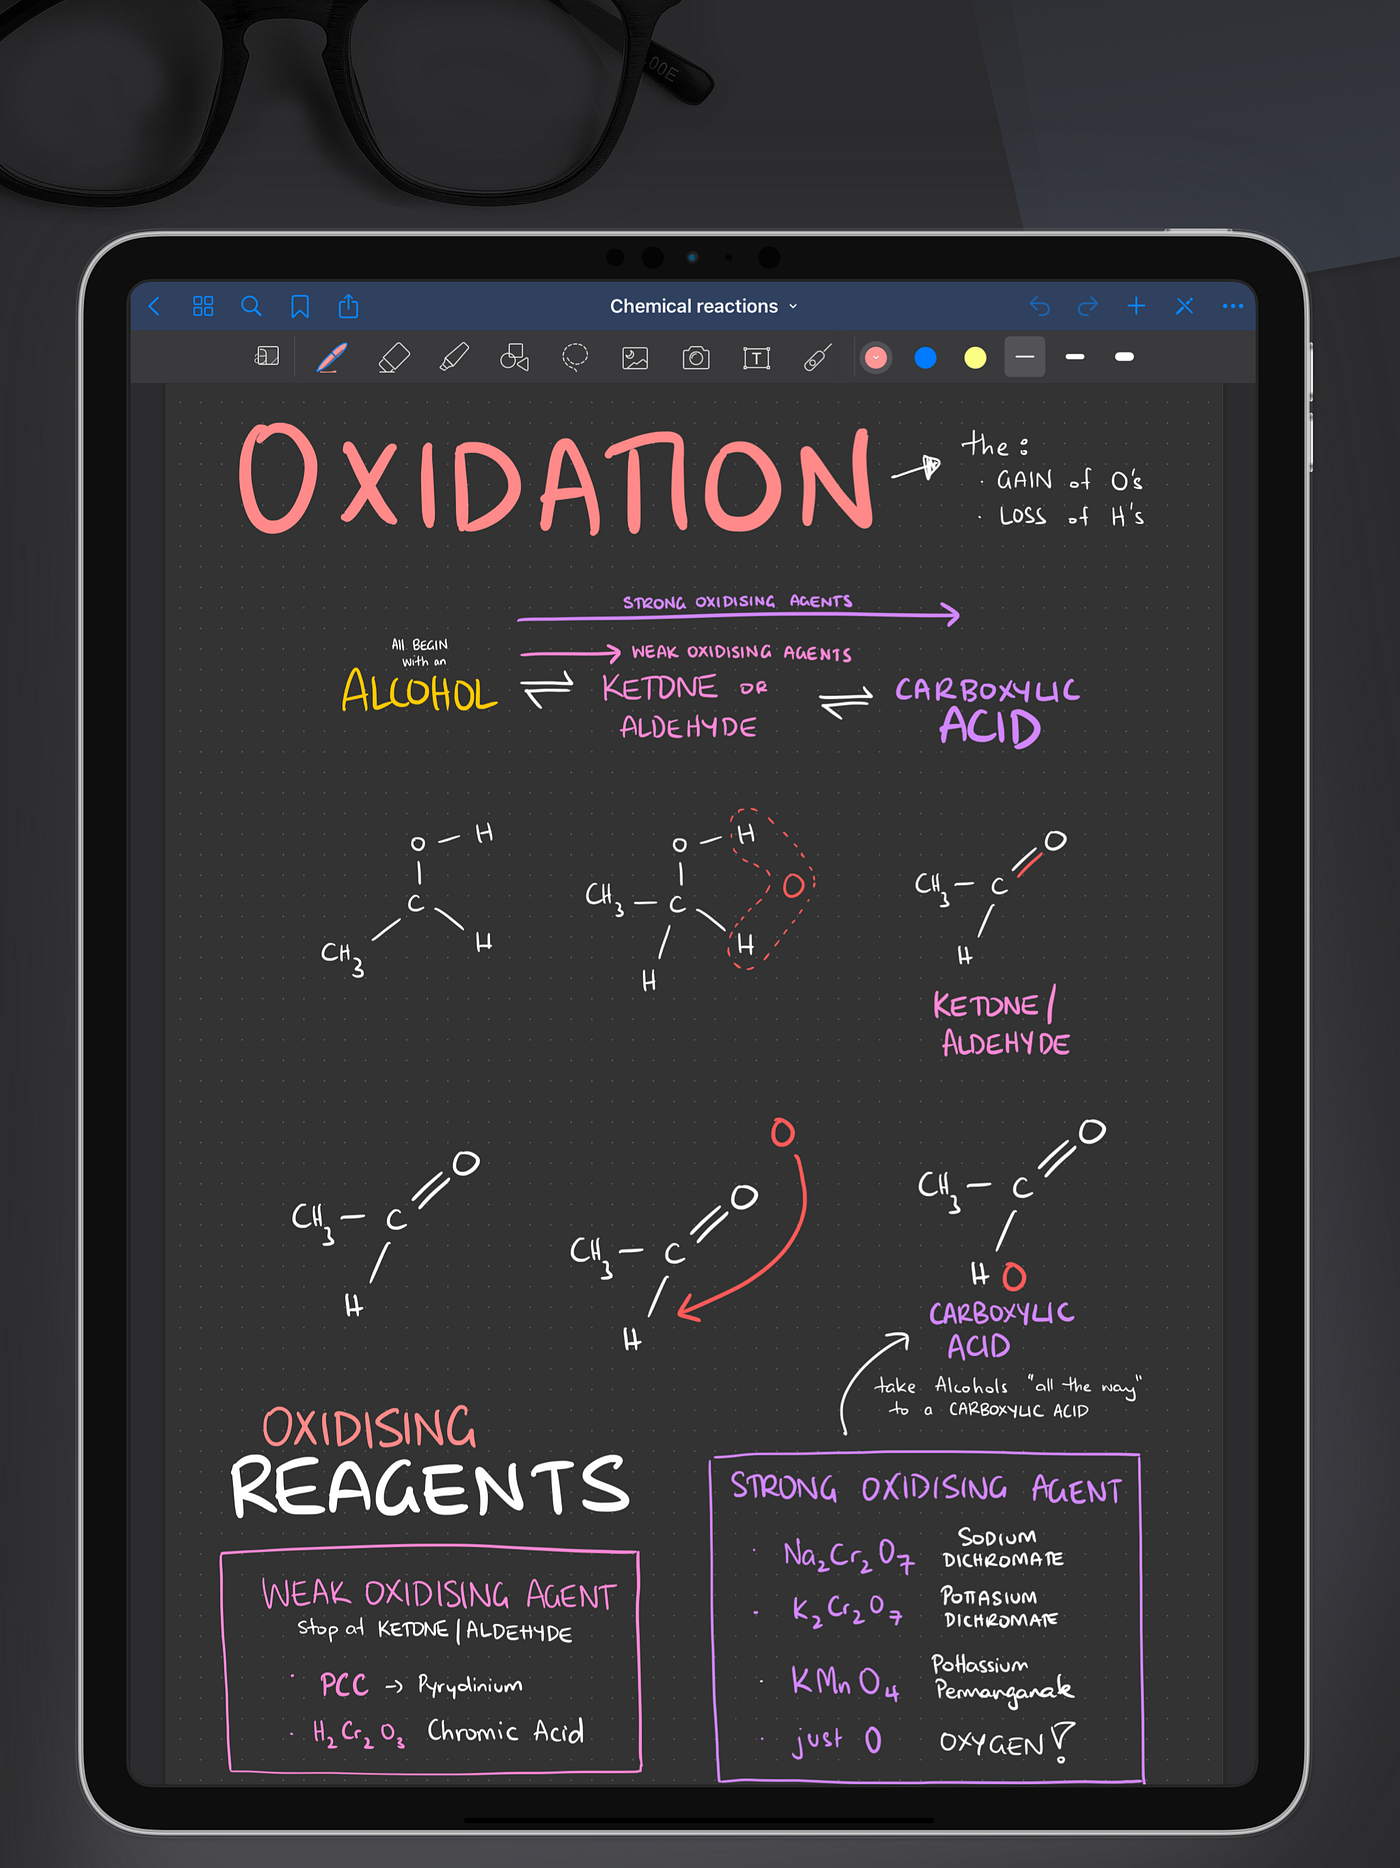 .00E
Chemical reactions
T
OXIDATION
the:
· GAIN of O's
· LOSS of H's
STRONG OXIDISING AGENTS
WEAK OXIDISING AGENTS
All BEGIN
with an
ALCOHOL
KETONE OR
ALDEHYDE
CARBOXYLIC
ACID
O H
C
CH3 H
O H
O
CH3 C
H
H
O
CH3 C
H
KETONE/
ALDEHYDE
O
CH3 C
H
O
O
CH3 C
H
O
CH3 C
H O
CARBOXYLIC
ACID
take Alcohols "all the way"
to a CARBOXYLIC ACID
OXIDISING
REAGENTS
WEAK OXIDISING AGENT
Stop at KETONE/ALDEHYDE
· PCC → Pyrydinium
· H2Cr2O3 Chromic Acid
STRONG OXIDISING AGENT
· Na2Cr2O7 SODIUM
DICHROMATE
· K2Cr2O7 POTTASIUM
DICHROMATE
· KMnO4 Pottassium
Permanganate
· just O OXYGEN!